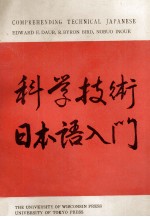 COMPREHENDING TECHNICAL JAPANESE
EDWARD E. DAUB, R. BYRON BIRD, NOBUO INOUE
科学技術
日本語入門
THE UNIVERSITY OF WISCONSIN PRESS
UNIVERSITY OF TOKYO PRESS